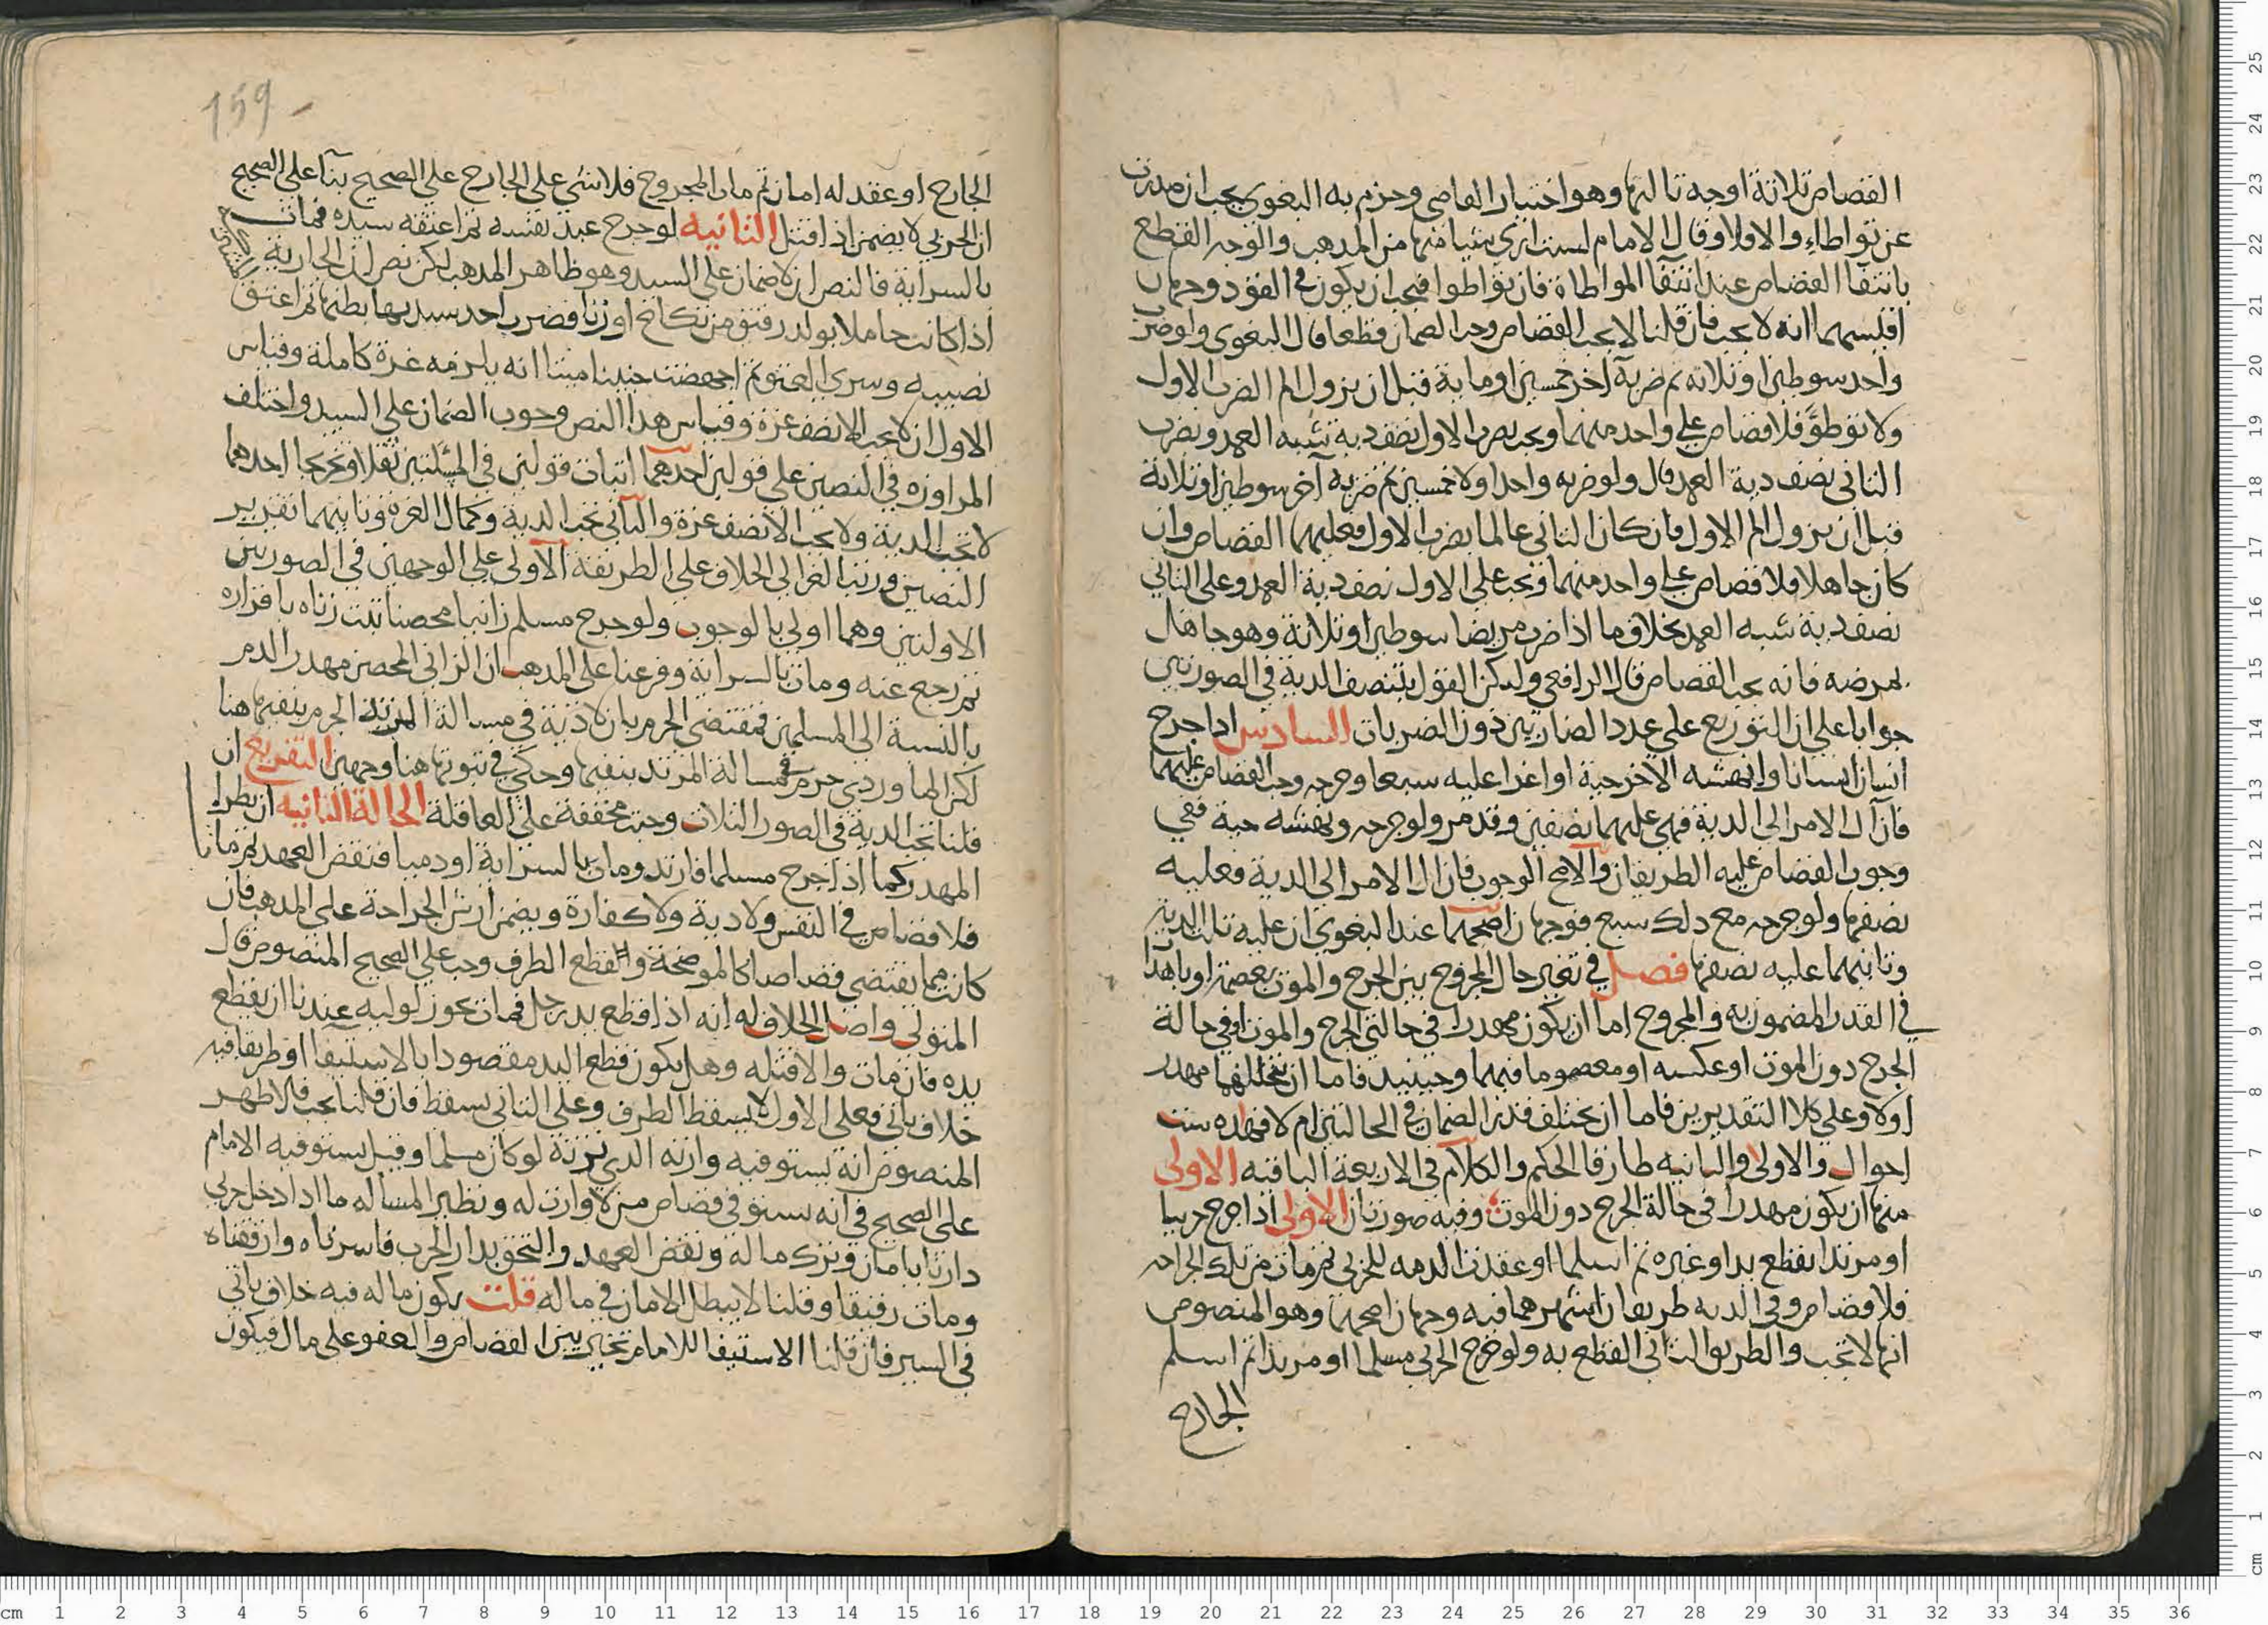 القصاص ثلاثة اوجه ثالثها وهو اختيار القاضي وجزم به البغوي يجب ان صدرت
عن تواطاء والا فلا وقال الامام لست ارى شيا منها من المذهب والوجه القطع
بانتفا القصاص عند انتفا المواطاة فان تواطوا فيجب ان يكون في القود وجهان
اقيسهما انه لا يجب فان قلنا لا يجب القصاص وجب الضمان قطعا قال البغوي ولو ضرب
واحد سوطين او ثلاثه ثم ضربه آخر خمسين او ماية قبل ان يزول الم الضرب الاول
ولا تواطؤ فلا قصاص على واحد منهما ويجب بضرب الاول نصف دية شبه العمد وبضرب
الثاني نصف دية العمد قال ولو ضربه واحد اولا خمسين ثم ضربه آخر سوطين او ثلاثة
قبل ان يزول الم الاول فان كان الثاني عالما بضرب الاول فعليهما القصاص وان
كان جاهلا فلا قصاص على واحد منهما ويجب على الاول نصف دية العمد وعلى الثاني
نصف دية شبه العمد بخلاف ما اذا ضرب مريضا سوطين او ثلاثة وهو جاهل
بمرضه فانه يجب القصاص قال الرافعي وليكن القول بتنصف الدية في الصورتين
جوابا على ان التوزيع على عدد الضاربين دون الضربات السادس اذا جرح
انسان انسانا وانهشه الاخر حية او اغرا عليه سبعا وجرحه وجب القصاص عليهما
فان آل الامر الى الدية فهي عليهما نصفين وقد مر ولو جرحه ونهشه حية ففي
وجوب القصاص عليه الطريقان والاصح الوجوب فان آل الامر الى الدية فعليه
نصفها ولو جرحه مع ذلك سبع فوجهان اصحهما عند البغوي ان عليه ثلث الدية
وثانيهما عليه نصفها فصل في تغير حال المجروح بين الجرح والموت بعصمة او باهدار
في القدر المضمون به والمجروح اما ان يكون مهدرا في حالتي الجرح والموت او في حالة
الجرح دون الموت او عكسه او معصوما فيهما وحينيد فاما ان يتخللهما مهدر
اولا وعلى كلا التقديرين فاما ان يختلف قدر الضمان في الحالتين ام لا فهذه ست
احوال والاولى والثانيه طارفا الحكم والكلام في الاربعة الباقيه الاولى
منها ان يكون مهدرا في حالة الجرح دون الموت وفيه صورتان الاولى اذا جرح حربيا
او مرتدا بقطع يد او غيره ثم اسلما او عقدت الذمه للحربي ثم مات من تلك الجراحه
فلا قصاص وفي الديه طريقان اشهرهما فيه وجهان اصحهما وهو المنصوص
انها لا تجب والطريق الثاني القطع به ولو جرح الحربي مسلما او مرتدا ثم اسلم
الجارح
159
الجارح او عقد له امان ثم مات المجروح فلا شي على الجارح على الصحيح بنآ على الصحيح
ان الحربي لا يضمن اذا قتل الثانيه لو جرح عبد نفسه ثم اعتقه سيده فمات
بالسراية فالنص ان لا ضمان على السيد وهو ظاهر المذهب لكن نص ان الجارية
اذا كانت حاملا بولد رقيق من نكاح او زنا فضرب احد سيديها بطنها ثم اعتق
نصيبه وسرى العتق ثم اجهضت جنينا ميتا انه يلزمه غرة كاملة وقياس
الاول ان لا يجب الا نصف غرة وقياس هذا النص وجوب الضمان على السيد واختلف
المراوزه في النصين على قولين احدهما اثبات قولين في المسئلتين نقلا وتخريجا احدهما
لا تجب الدية ولا يجب الا نصف غرة والثاني تجب الدية وكمال الغرة وثانيهما تقرير
النصين ورتب الغزالي الخلاف على الطريقة الاولى على الوجهين في الصورتين
الاولتين وهما اولى بالوجوب ولو جرح مسلم زانيا محصنا ثبت زناه باقراره
ثم رجع عنه ومات بالسراية وفرعنا على المذهب ان الزاني المحصن مهدر الدم
بالنسبة الى المسلمين فمقتضى الجزم بان لا دية في مسالة المرتد الجزم بنفيها هنا
لكن الماوردي جزم في مسالة المرتد بنفيها وحكى في ثبوتها هنا وجهين التفريع ان
قلنا تجب الدية في الصور الثلاث وجبت مخففة على العاقلة الحالة الثانيه ان يطرا
المهدر كما اذا جرح مسلما فارتد ومات بالسراية او ذميا فنقض العهد ثم مات
فلا قصاص في النفس ولا دية ولا كفارة ويضمن ارش الجراحة على المذهب فان
كانت مما يقتضي قصاصا كالموضحة وقطع الطرف وجب على الصحيح المنصوص قال
المتولي واصل الخلاف له انه اذا قطع يد رجل فمات يجوز لوليه عندنا ان يقطع
يده فان مات والا قتله وهل يكون قطع اليد مقصودا بالاستيفا او طريقا فيه
خلاف ياتي فعلى الاول لا يسقط الطرف وعلى الثاني يسقط فان قلنا يجب فالاظهر
المنصوص انه يستوفيه وارثه الذي يرثه لو كان مسلما وقيل يستوفيه الامام
على الصحيح في انه يستوفي قصاص من لا وارث له ونظير المسأله ما اذا دخل حربي
دارنا بامان وترك ماله ونقض العهد والتحق بدار الحرب فاسرناه وارققناه
ومات رقيقا وقلنا لا يبطل الامان في ماله قلت يكون ماله فيه خلاف ياتي
في السير فان قلنا الاستيفا للامام تخير بين القصاص والعفو على مال فيكون